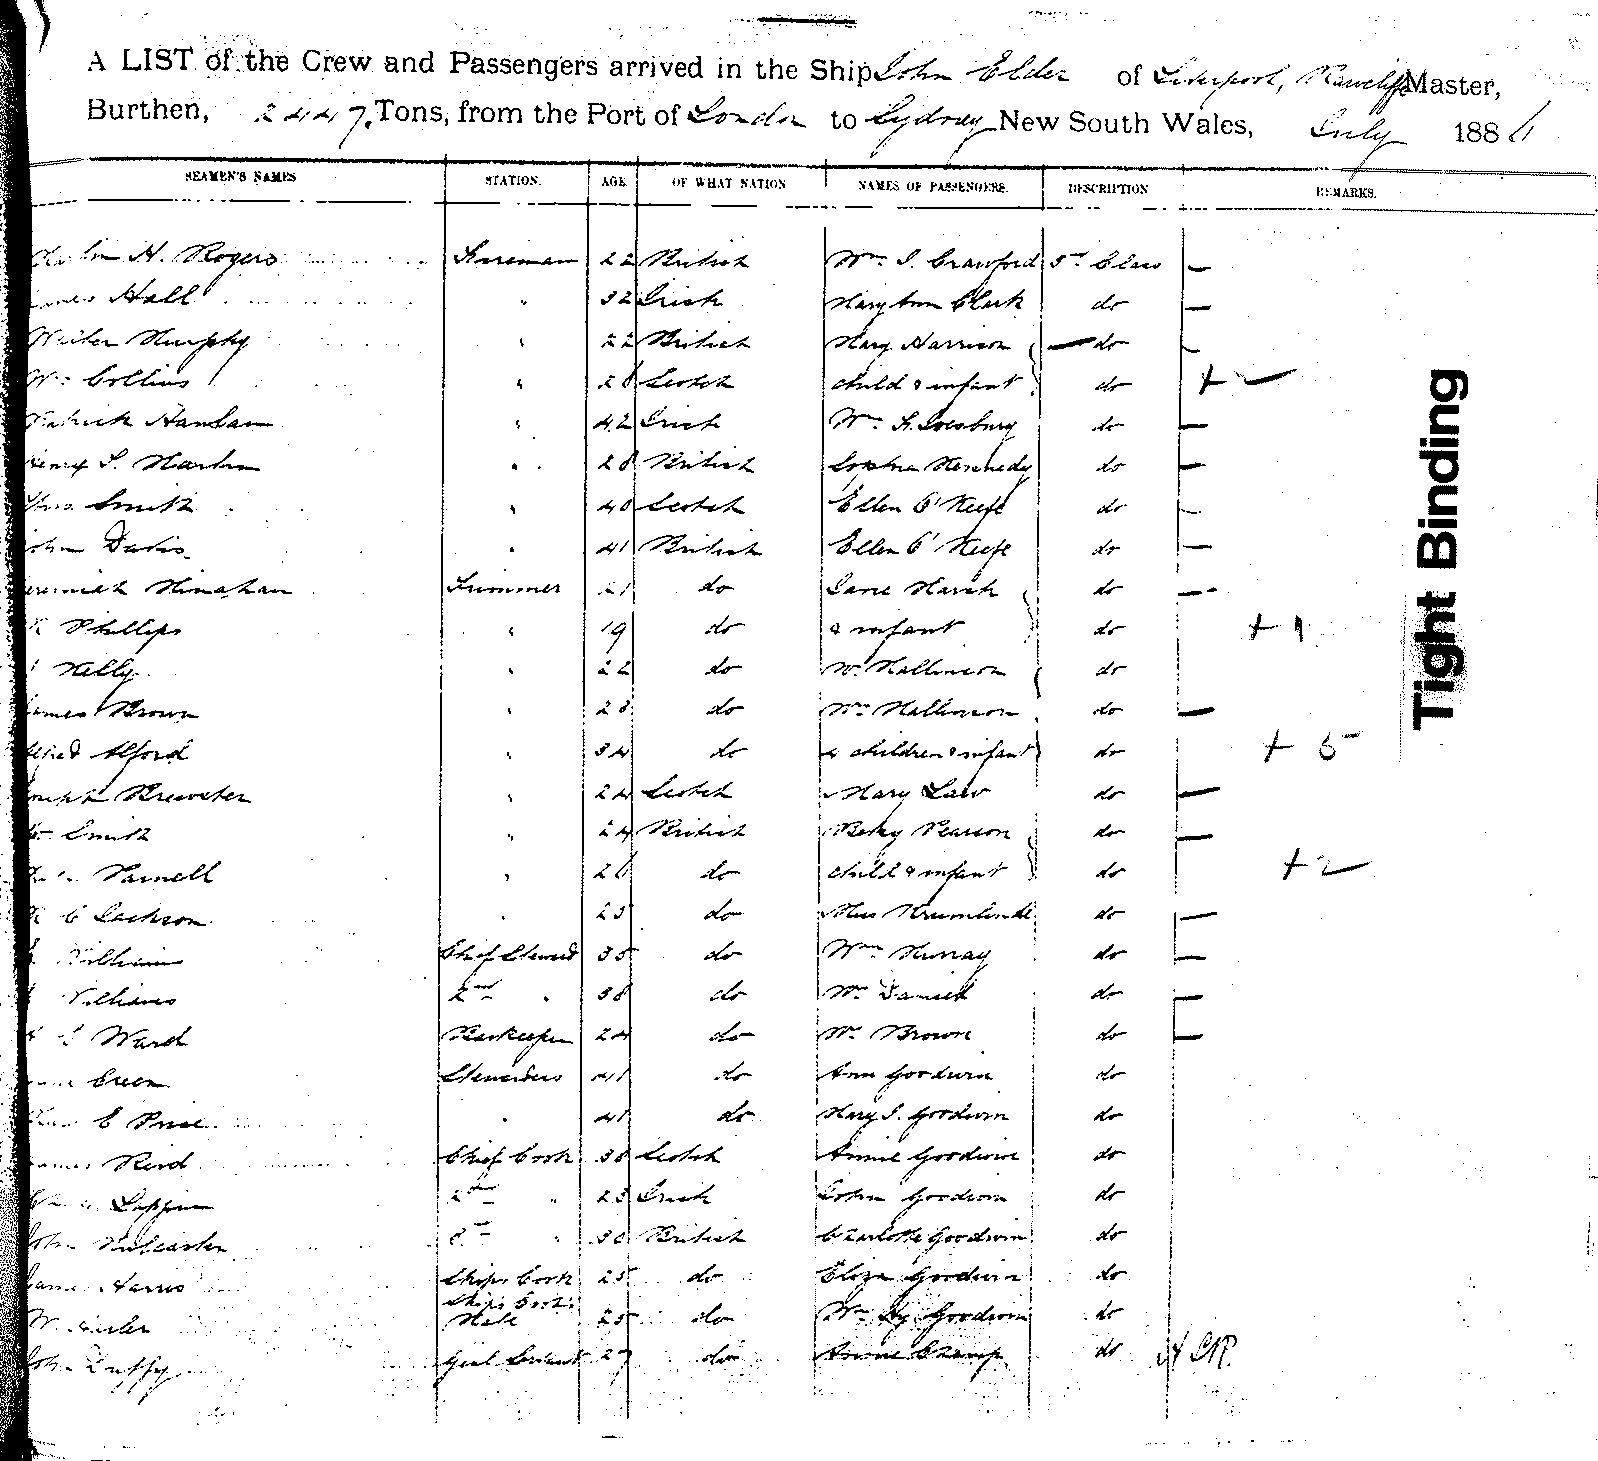 A LIST of the Crew and Passengers arrived in the Ship John Elder of Liverpool, Rawcliffe Master,
Burthen, 2447 Tons, from the Port of London to Sydney New South Wales, July 1886
SEAMEN'S NAMES STATION. AGE OF WHAT NATION NAMES OF PASSENGERS. DESCRIPTION REMARKS.
H. Rogers Fireman 22 British Wm J. Crawford 3rd Class
James Hall " 32 Irish Mary Ann Clark do
Murphy " 22 British Mary Harrison do
Wm Collins " 28 Scotch child & infant do + 2
Patrick Hanlan " 42 Irish Wm do
Henry J. Martin " 28 British Sophia Kennedy do
Thos Smith " 40 Scotch Ellen O'Keefe do
John Davis " 41 British Ellen O'Keefe do
Jeremiah Minahan Trimmer 21 do Jane Marsh do
Phillips " 19 do & infant do + 1
Kelly " 22 do do
James Brown " 28 do do
Alfred Alford " 34 do 4 children & infant do + 5
Joseph Brewster " 24 Scotch Mary Law do
Smith " 24 British Betsy Pearson do
Parnell " 26 do child & infant do + 2
C Jackson " 25 do Miss do
William Chief Steward 35 do Wm Murray do
Williams 2nd " 38 do Wm Daniell do
Ward Barkeeper 24 do Wm Brown do
Green Stewardess 41 do Ann Goodwin do
E Price " 41 do Mary J. Goodwin do
James Reid Chief Cook 38 Scotch Annie Goodwin do
Lappin 2nd " 23 Irish John Goodwin do
John Mulcaster 3rd " 30 British Charlotte Goodwin do
Harris Ships Cook 25 do Eliza Goodwin do
W. Ships Cooks Mate 25 do Wm Hy Goodwin do
John Duffy Genl Servant 27 do Annie Champ do
Tight Binding